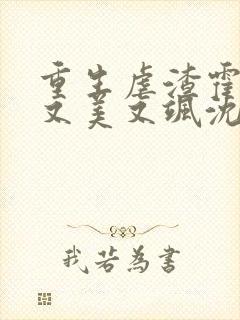 重生虐渣霍
又美又飒沈
我若为書